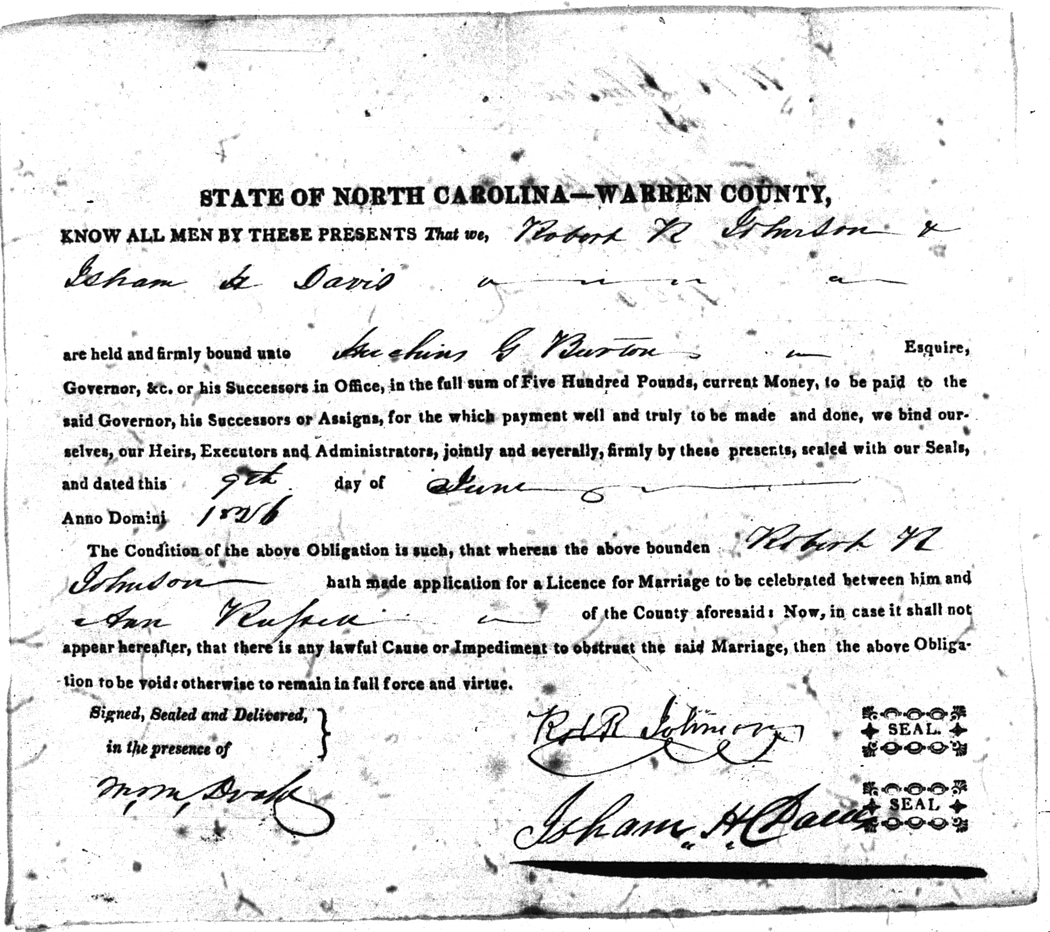 STATE OF NORTH CAROLINA—WARREN COUNTY,
KNOW ALL MEN BY THESE PRESENTS That we, Robert R Johnson &
Isham H Davis
are held and firmly bound unto Hutchins G Burton Esquire,
Governor, &c. or his Successors in Office, in the full sum of Five Hundred Pounds, current Money, to be paid to the
said Governor, his Successors or Assigns, for the which payment well and truly to be made and done, we bind our-
selves, our Heirs, Executors and Administrators, jointly and severally, firmly by these presents, sealed with our Seals,
and dated this 9th day of June
Anno Domini 1826
The Condition of the above Obligation is such, that whereas the above bounden Robert R
Johnson hath made application for a Licence for Marriage to be celebrated between him and
Ann Russell of the County aforesaid: Now, in case it shall not
appear hereafter, that there is any lawful Cause or Impediment to obstruct the said Marriage, then the above Obliga-
tion to be void: otherwise to remain in full force and virtue.
Signed, Sealed and Delivered,
in the presence of
Robt R Johnson SEAL.
Isham H Davis SEAL